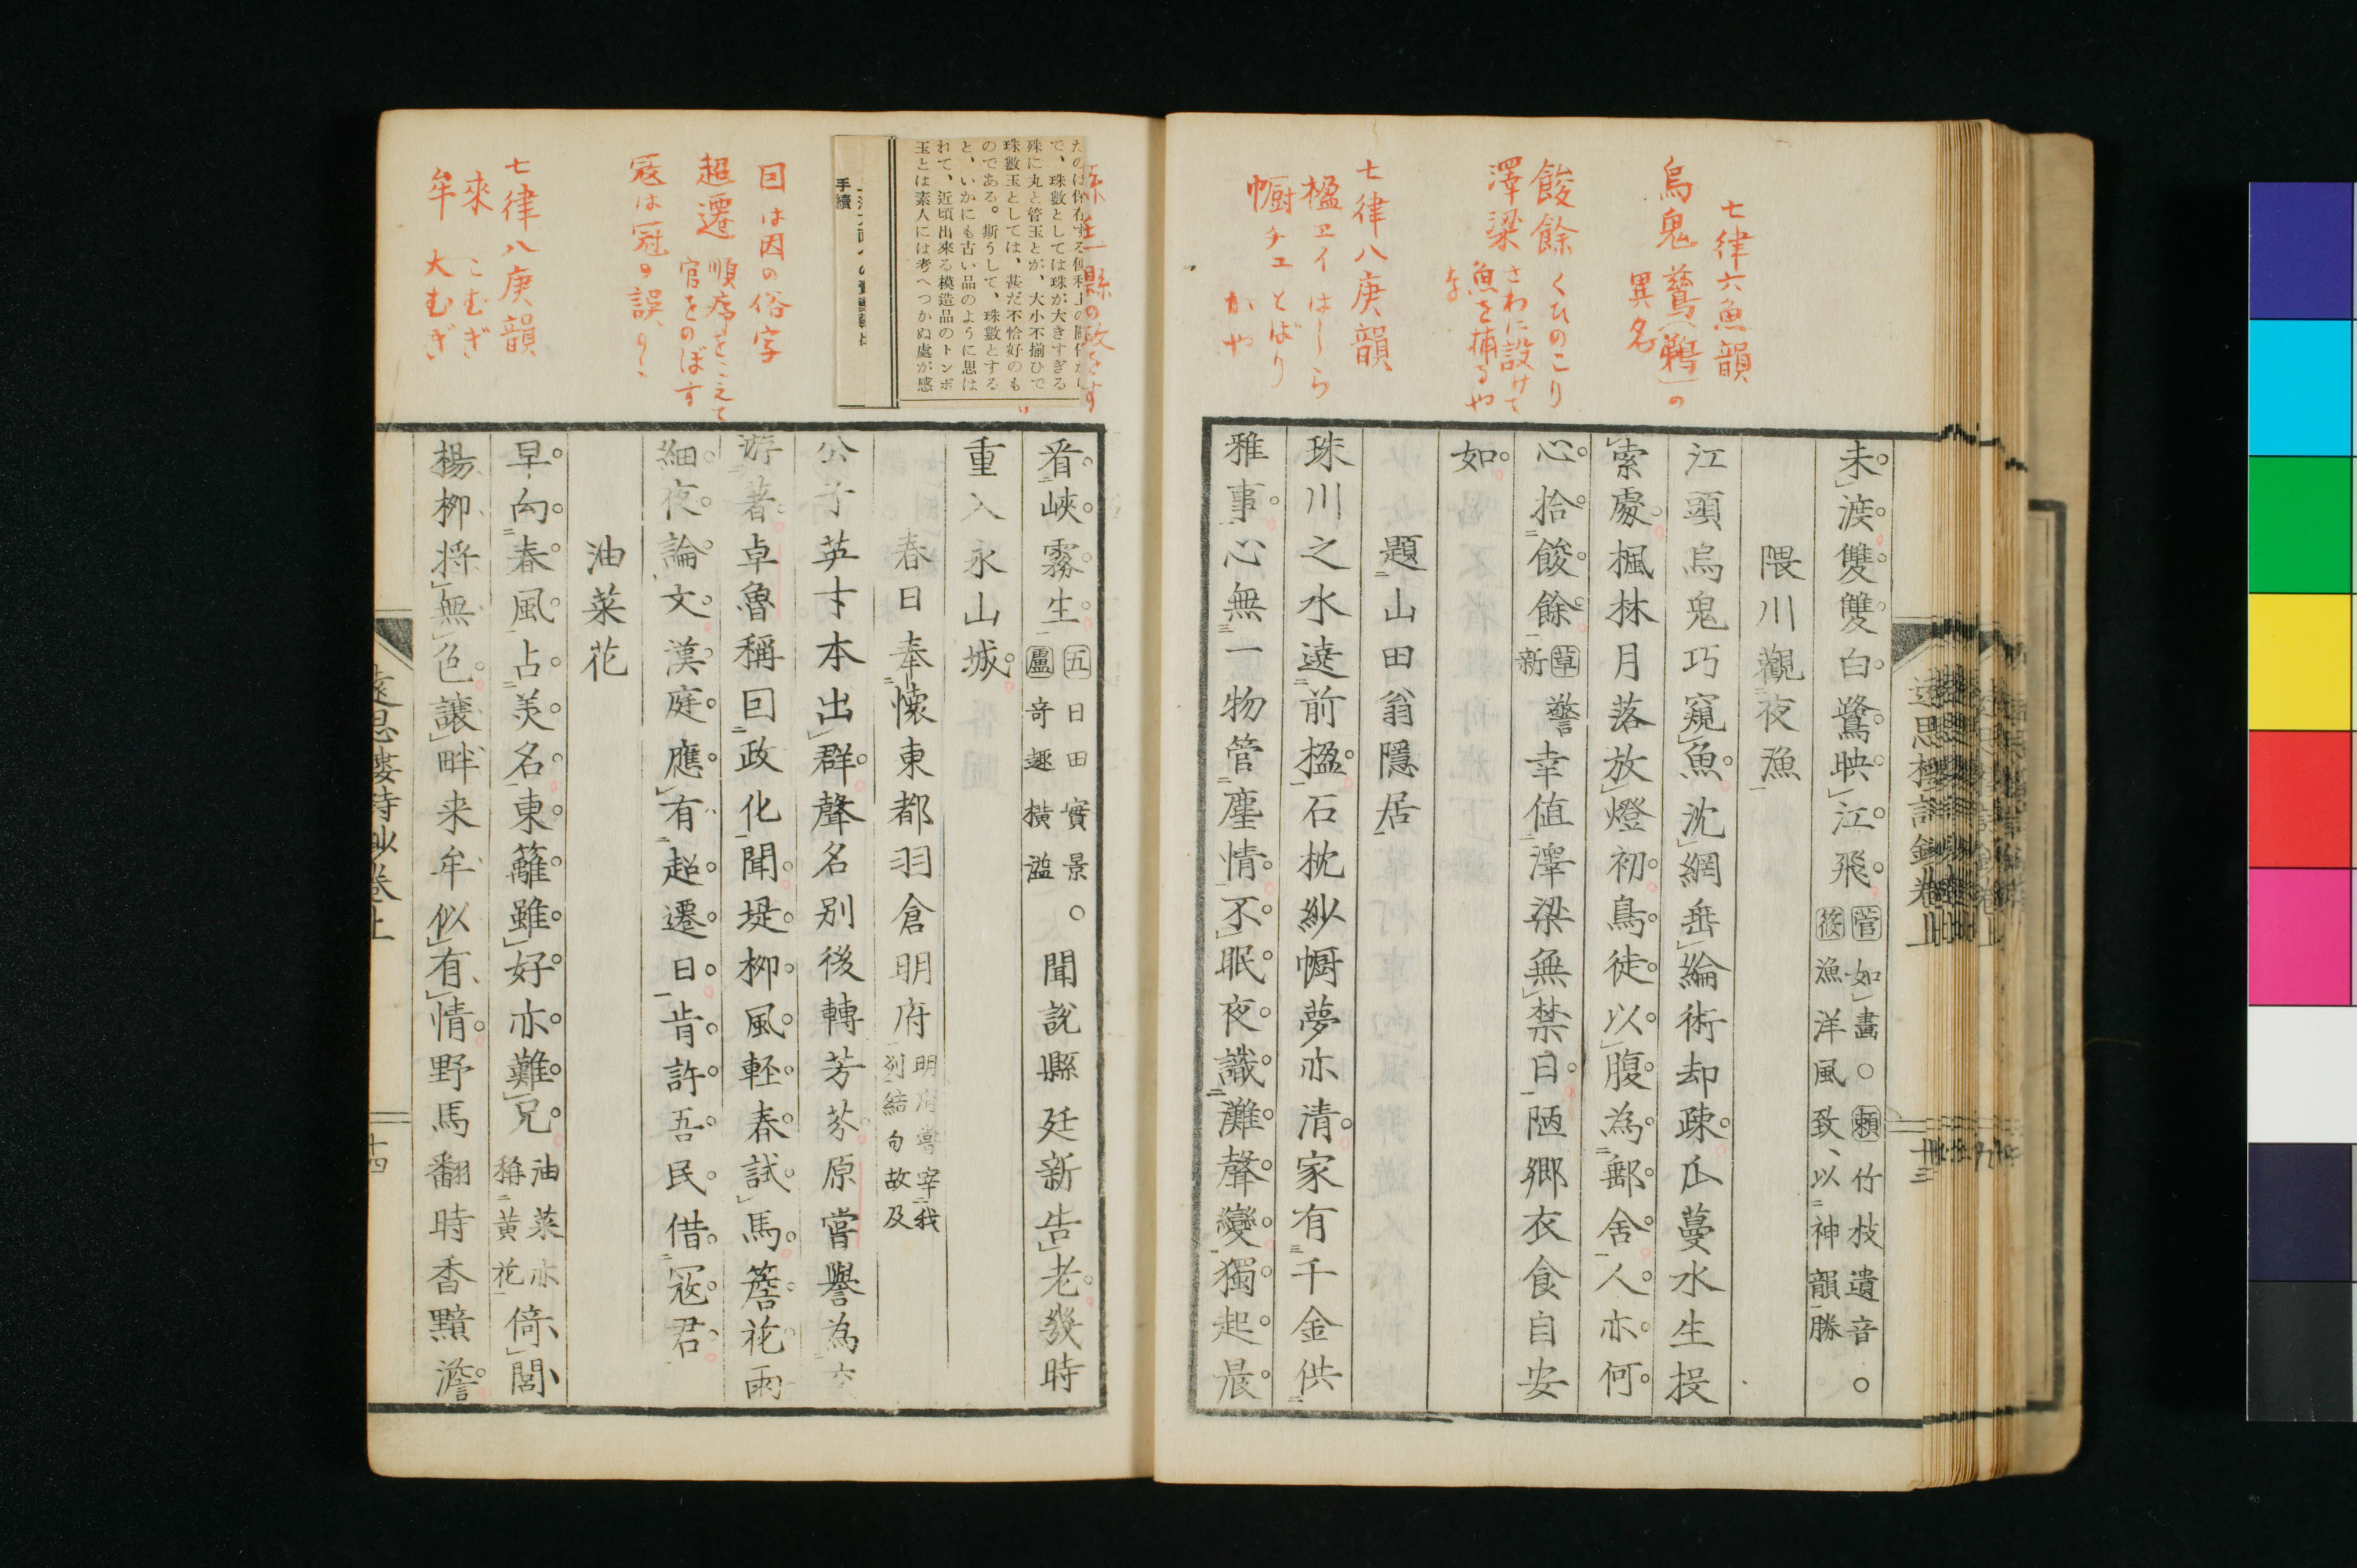 七律六魚韻
烏鬼 鵞(鵜)の
異名
餕餘 くひのこり
澤梁 さわに設けて
魚を捕るや
な
七律八庚韻
楹 ヱイ はしら
幮 チユ とばり
かや
未渡雙雙白鷺映江飛 菅如畫○頼竹枝遺音○
筱漁洋風致、以神韻勝
隈川觀夜漁
江頭烏鬼巧窺魚沈網垂綸術却疎瓜蔓水生投
索處楓林月落放燈初鳥徒以腹為郵舎人亦何
心拾餕餘 草警
新 幸値澤梁無禁日陋郷衣食自安
如
題山田翁隱居
珠川之水遶前楹石枕紗幮夢亦清家有千金供
雅事心無一物管塵情不眠夜識灘聲變獨起晨
縣の政をす
たのは保存する便利上の關係から
で、珠數としては珠が大きすぎる
殊に丸と管玉とが、大小不揃ひで
珠數玉としては、甚だ不恰好のも
のである。斯うして、珠數とする
と、いかにも古い品のように思は
れて、近頃出來る模造品のトンボ
玉とは素人には考へつかぬ處が感
手續
囙は因の俗字
超遷 順序をこえて
官をのぼす
寇は冠の誤り
七律八庚韻
來 こむぎ
牟 大むぎ
看峽霧生 五日田實景
盧奇趣横溢 ○聞說縣廷新告老幾時
重入永山城
春日奉懐東都羽倉明府 明府嘗宰我
列結句故及
公子英才本出群聲名別後轉芳芬原嘗譽為
游著卓魯稱囙政化聞堤柳風軽春試馬簷花雨
細夜論文漢庭應有超遷日肯許吾民借寇君
油菜花
早向春風占美名東籬雖好亦難兄 油菜亦
稱黄花 倚閭
楊柳将無色讓畔来牟似有情野馬翻時香黯澹
遠思樓詩鈔卷上
十四